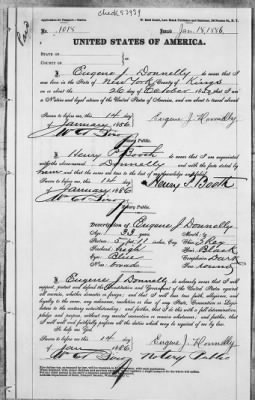 check 52939
No. 1018
Issued Jan. 18, 1886.
UNITED STATES OF AMERICA.
STATE OF
COUNTY OF
I, Eugene J. Donnelly do swear that I was
born in the State of New York County of Kings
on or about the 26 day of October 1852 that I am
a Native and legal citizen of the United States of America, and am about to travel abroad
Sworn to before me, this 14 day
of January 1886
Eugene J. Donnelly
Notary Public.
I, Henry P. Booth do swear that I am acquainted
with the above-named Donnelly and with the facts stated by
him and that the same are true to the best of my knowledge and belief.
Sworn to before me, this 14 day
of January 1886
Henry P. Booth
Notary Public.
Description of Eugene J. Donnelly
Age: 33 years
Stature: 5 ft 11 inches, Eng.
Forehead: high
Eyes: Blue
Hair: Black
Complexion: Dark
Face: round
I, Eugene J. Donnelly do solemnly swear that I will
support, protect and defend the Constitution and Government of the United States against
all enemies, whether domestic or foreign; and that I will bear true faith, allegiance, and
loyalty to the same, any ordinance, resolution or law of any State, Convention or Legis-
lature to the contrary notwithstanding; and further, that I do this with a full determination,
pledge and purpose, without any mental reservation or evasion whatsoever; and further, that
I will well and faithfully perform all the duties which may be required of me by law.
So help me God.
Sworn to before me, this 14 day
of Jan 1886
Eugene J. Donnelly
Notary Public